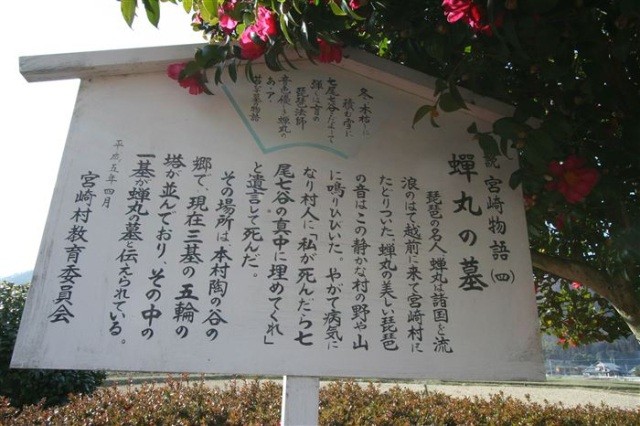 続 宮崎物語(四)
蟬丸の墓
琵琶の名人 蟬丸は諸国を流
浪のはて越前に来て宮崎村に
たどりついた。蟬丸の美しい琵琶
の音はこの静かな村の野や山
に鳴りひびいた。やがて病気に
なり村人に「私が死んだら七
尾七谷の真中に埋めてくれ」
と遺言して死んだ。
その場所は本村陶の谷の
郷で、現在三基の五輪の
塔が並んでおり、その中の
一基が蟬丸の墓と伝えられている。
平成五年四月
宮崎村教育委員会
冬・木枯しに
積む雪に
琵琶法師
音色優し蟬丸の
あゝア